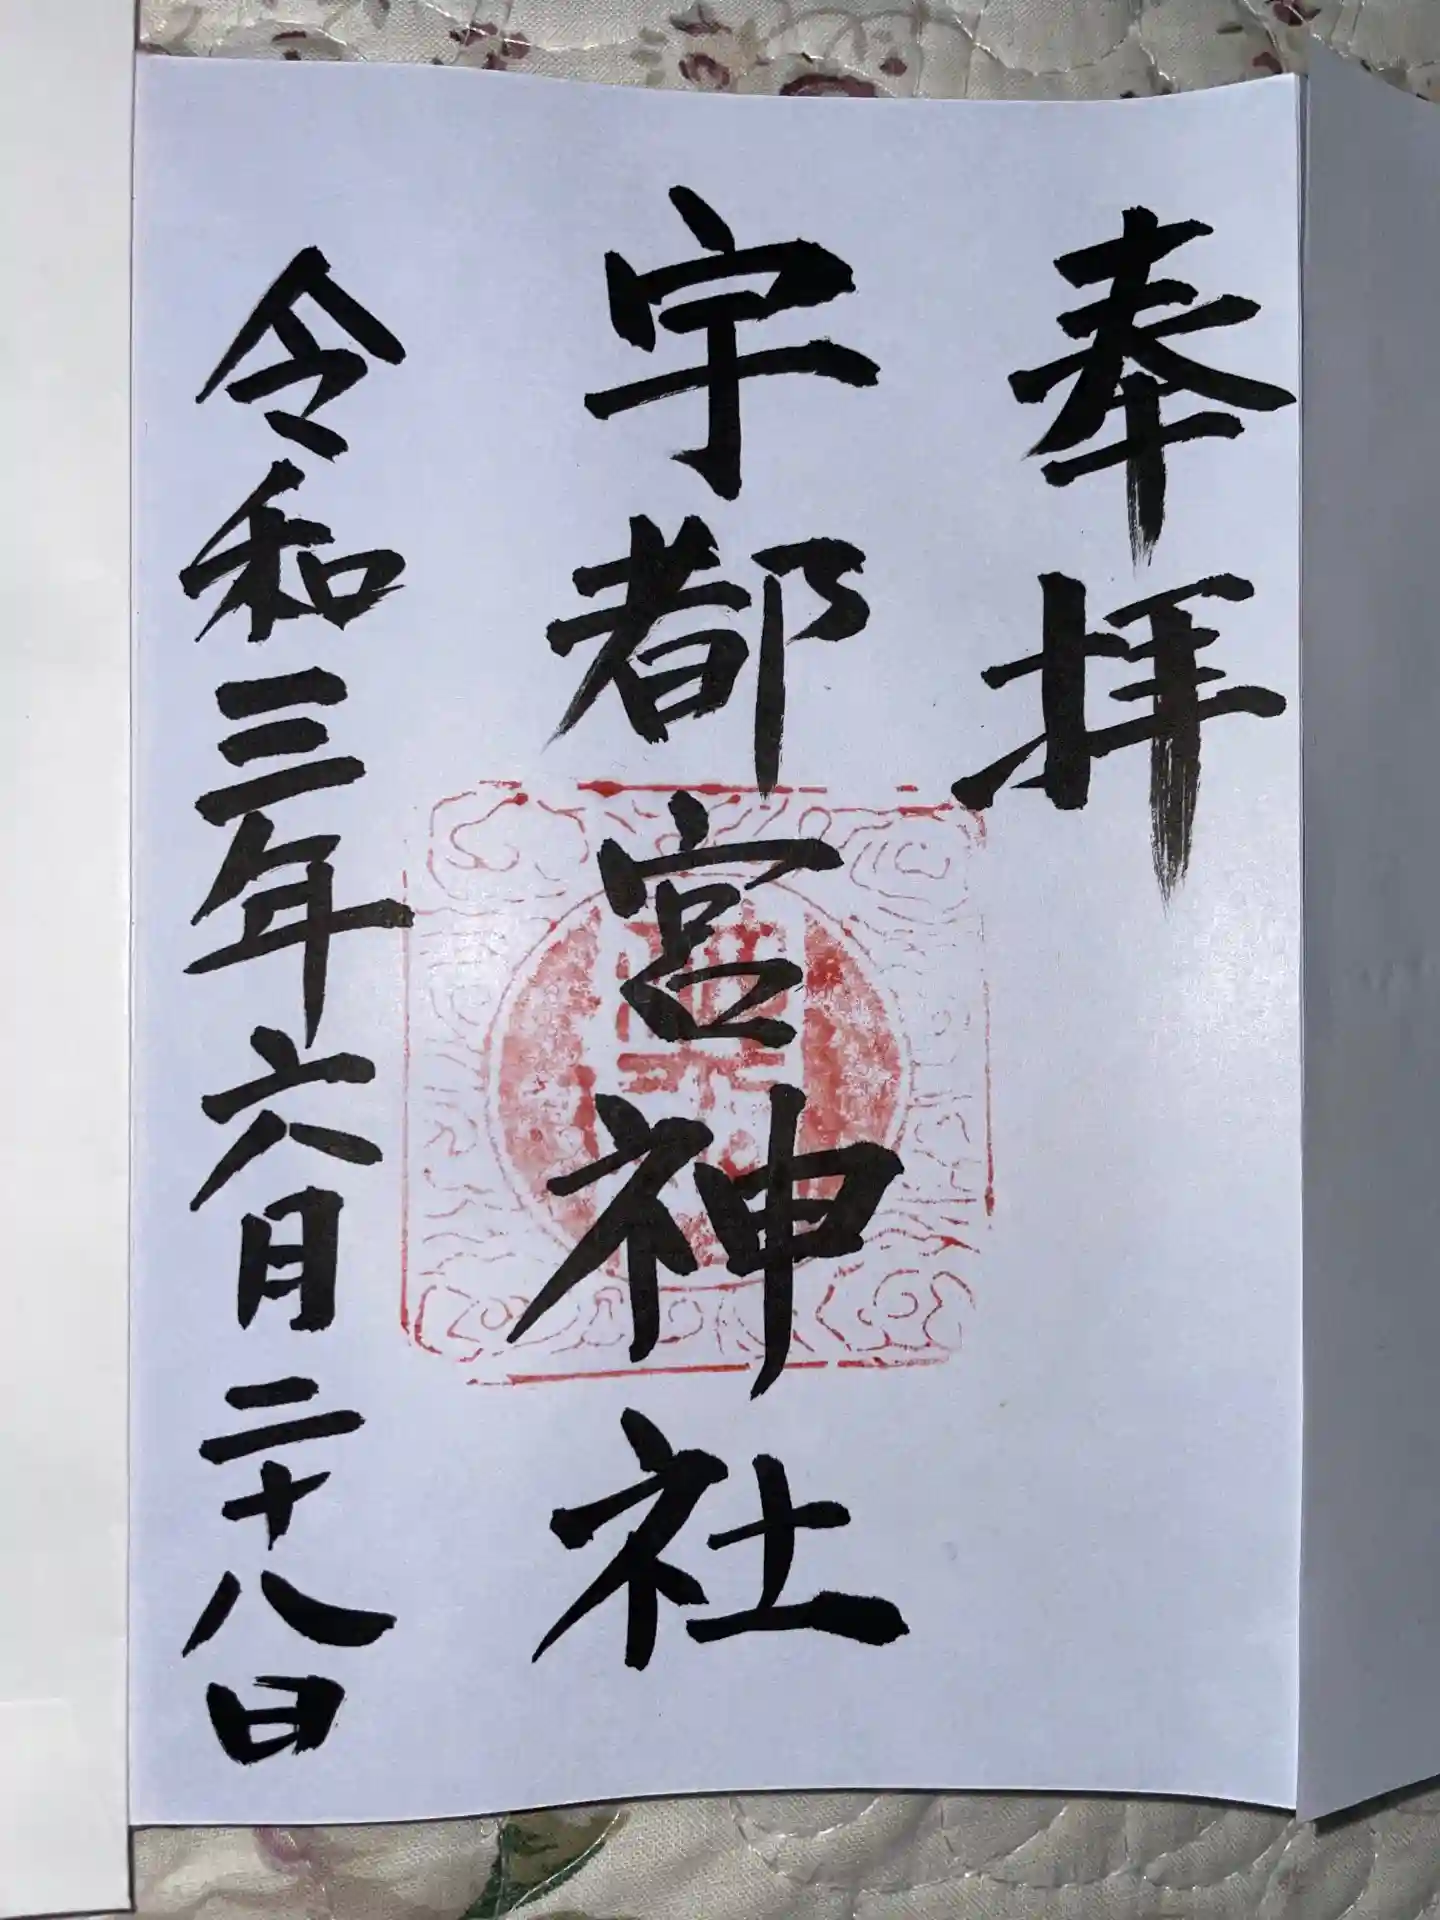 奉拝
宇都宮神社
令和三年六月二十八日